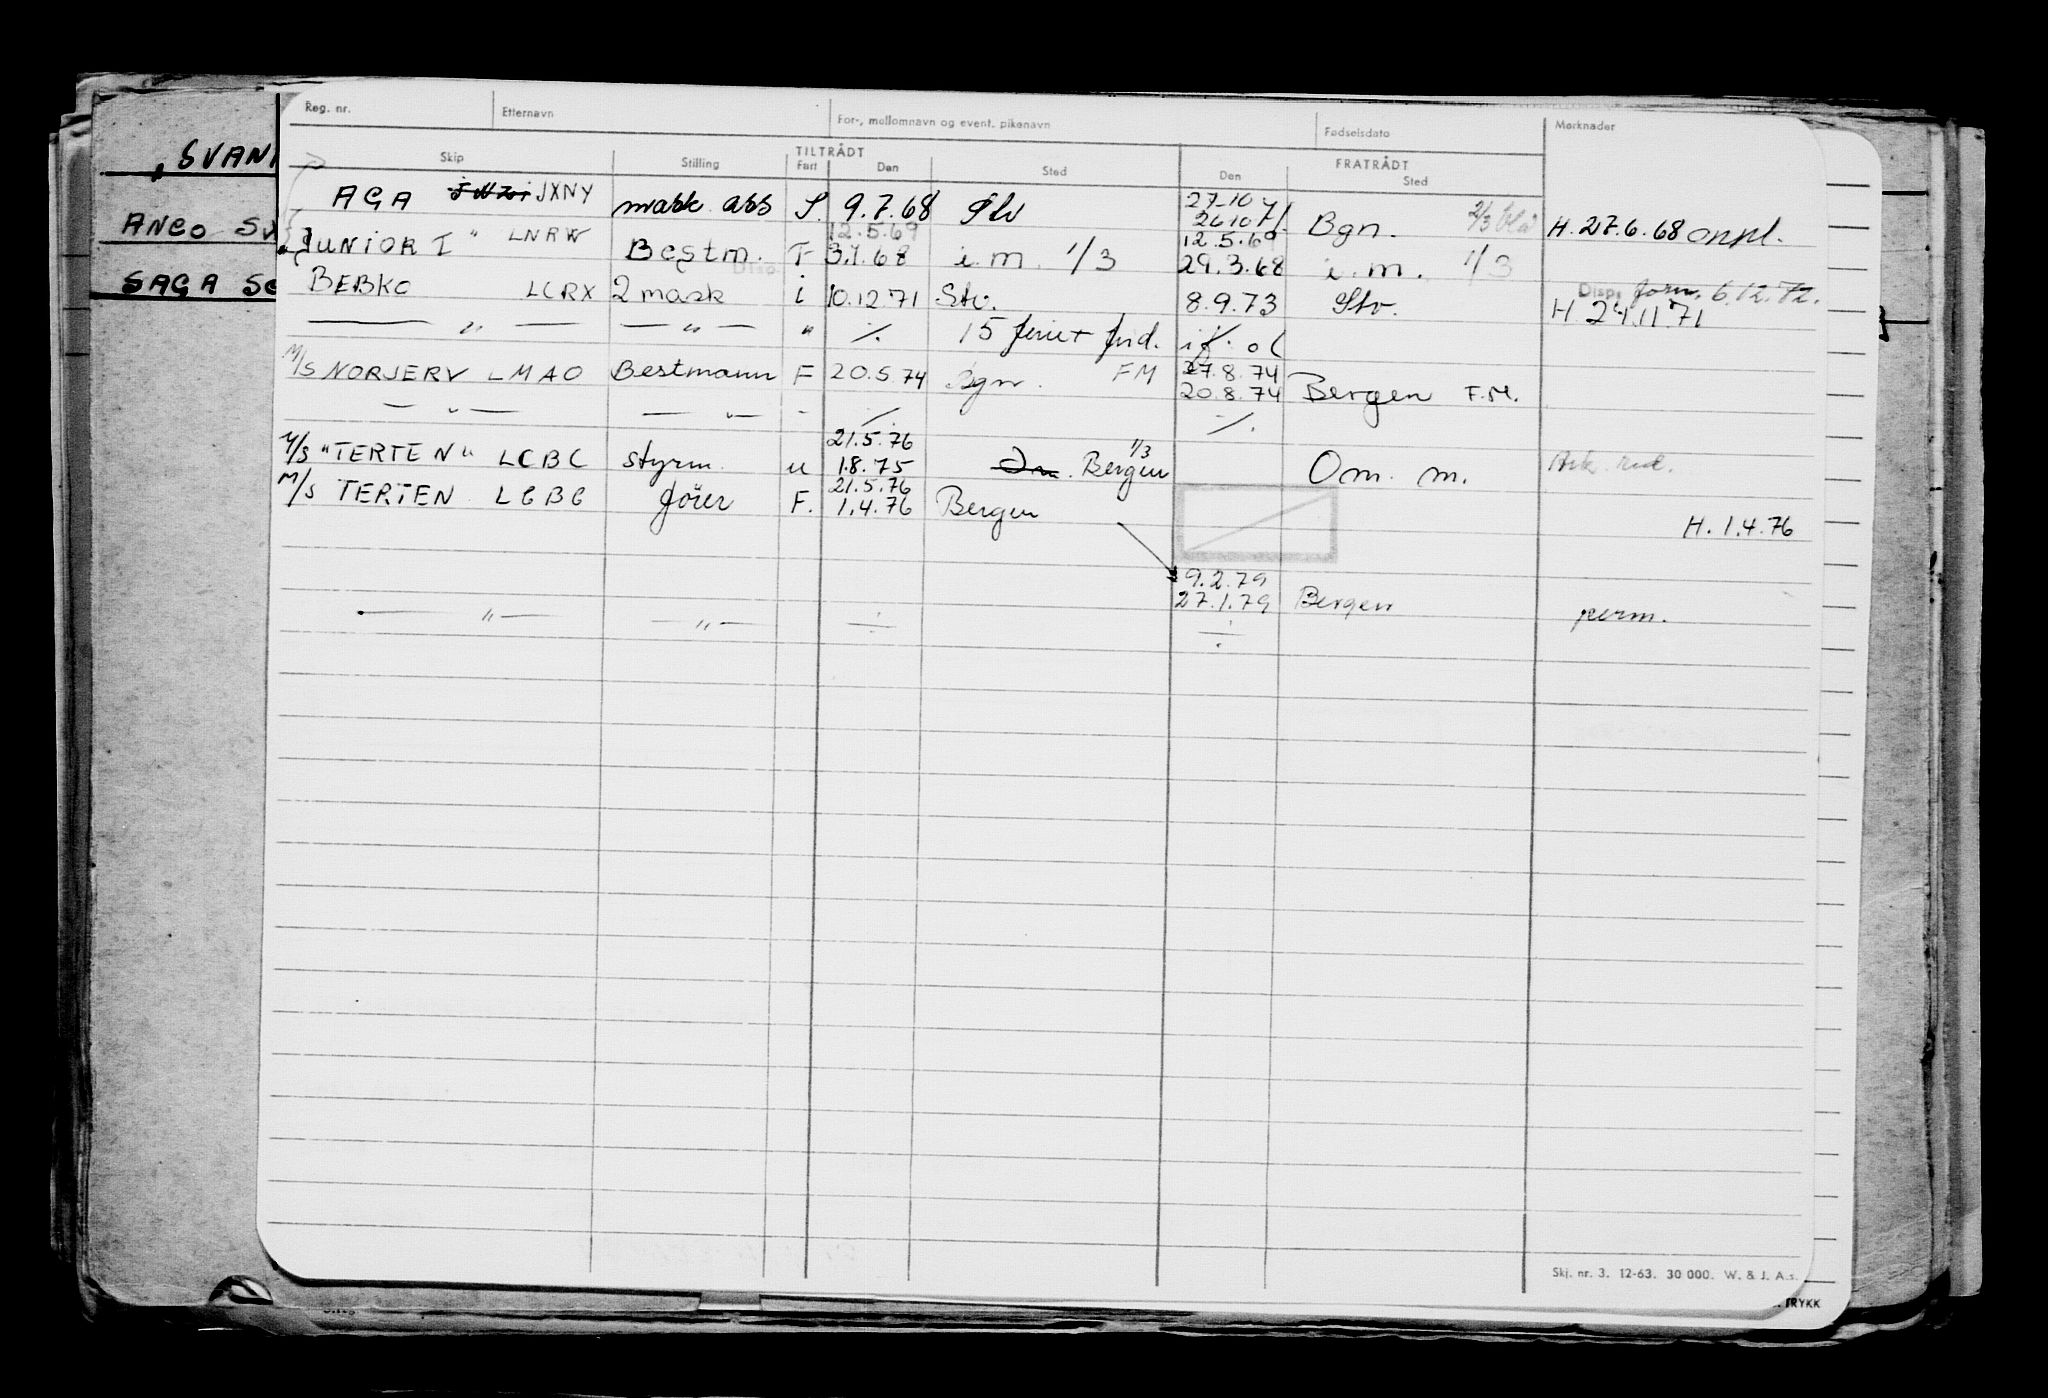 Reg. nr. Etternavn For-, mellomnavn og event. pikenavn Fødselsdato Merknader
TILTRÅDT FRATRÅDT
Skip Stilling Fart Den Sted Den Sted
"SVAN
ANCO SV
SAGA SC
AGA JXNY mask. ass S. 9.7.68 Stv 27-10 71 Bgn. 2/3 H. 27.6.68 oppl.
26 10 71
12.5.69 12.5.69
JUNIOR I" LNRW Bestm. F 3.1.68 i.m. 1/3 29.3.68 i.m. 1/3
Disp.
BEBKO LCRX 2 mask i 10.12.71 Stv. 8.9.73 Stv. Disp. forn. 6.12.72.
H 24.11.71
— " — — " — " ./. 15
M/S NORJERV LMAO Bestmann F 20.5.74 Bgn. FM 27.8.74
20.8.74 Bergen F.M.
— " — — " — - ./. ./.
21.5.76
M/S "TERTEN" LCBC styrm. u 1.8.75 Bergen 1/3 Om. m.
21.5.76
M/S TERTEN LCBC F. 1.4.76 Bergen H. 1.4.76
9.2.79
27.1.79 Bergen perm.
— " — — " — ÷ ÷
Skj. nr. 3. 12-63. 30 000. W. & J. A.s.
TRYKK